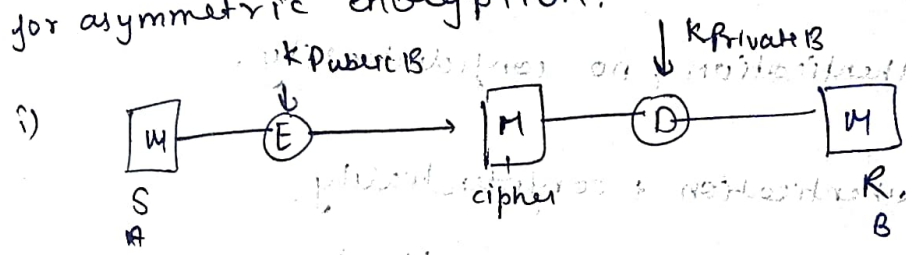 for asymmetric encryption.
K Public B
K Private B
i) M E M D M
S cipher R.
A B